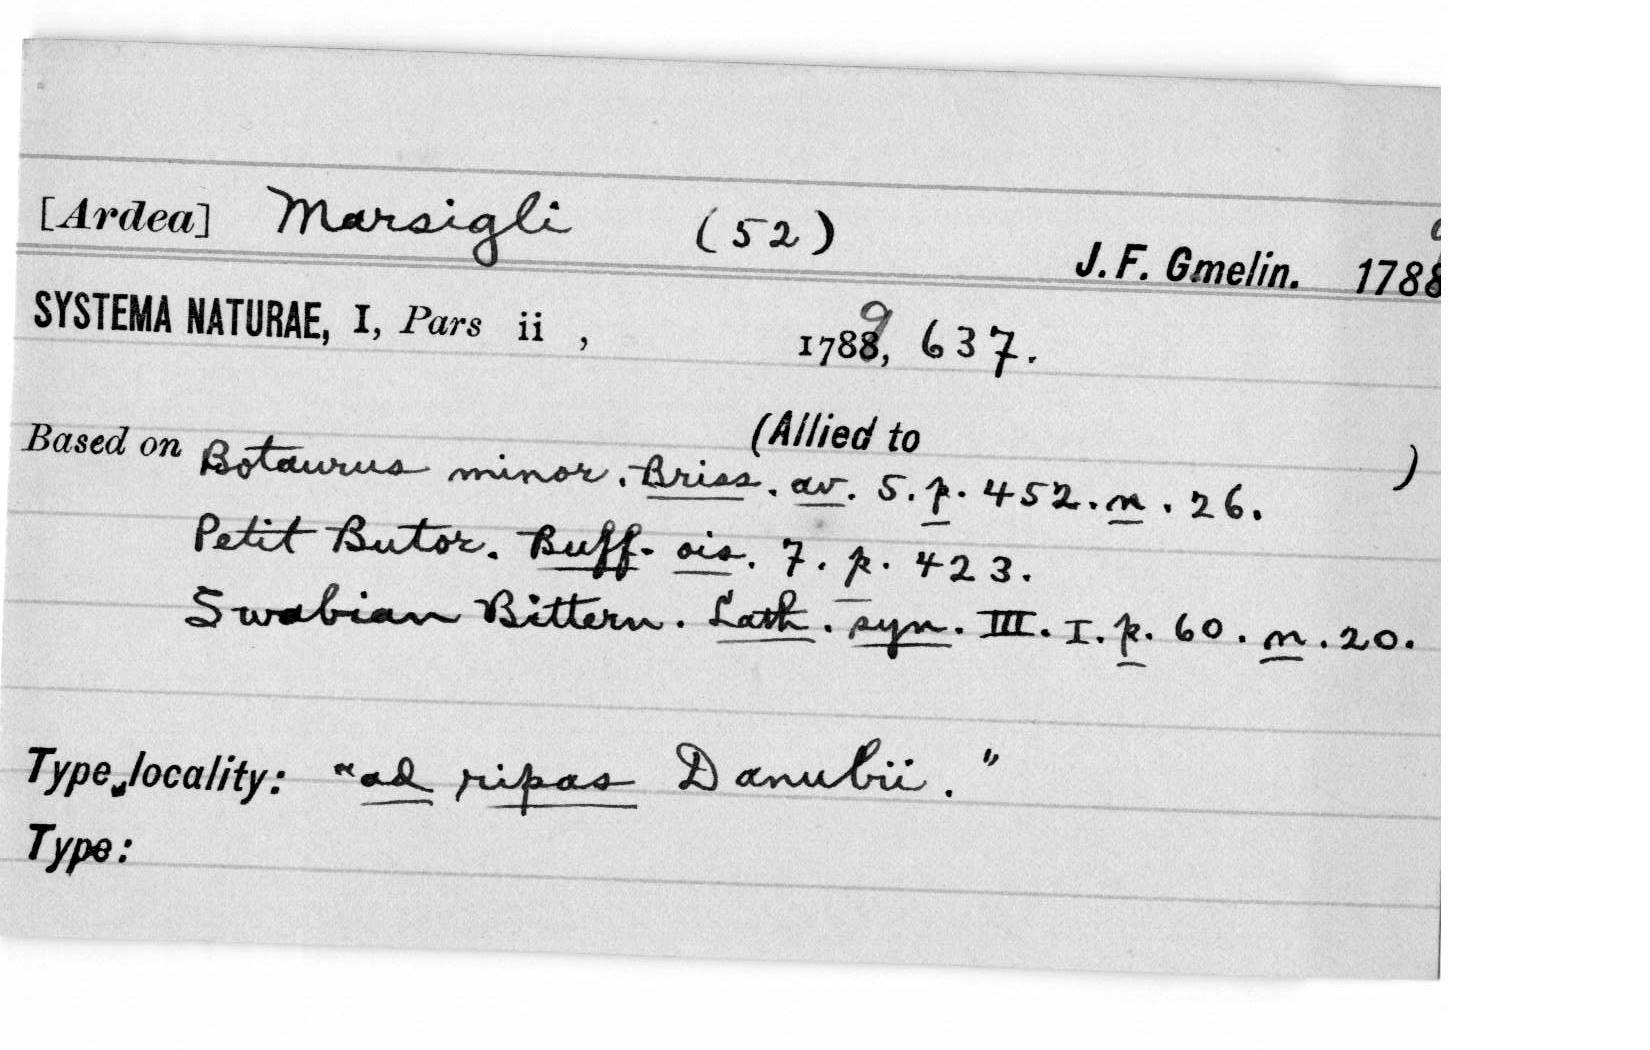 [Ardea] Marsigli (52)
J. F. Gmelin. 1788
SYSTEMA NATURAE, I, Pars ii , 1789, 637.
(Allied to )
Based on Botaurus minor. Briss. av. 5. p. 452. n. 26.
Petit Butor. Buff. ois. 7. p. 423.
Swabian Bittern. Lath. syn. III. I. p. 60. n. 20.
Type locality: "ad ripas Danubii."
Type: